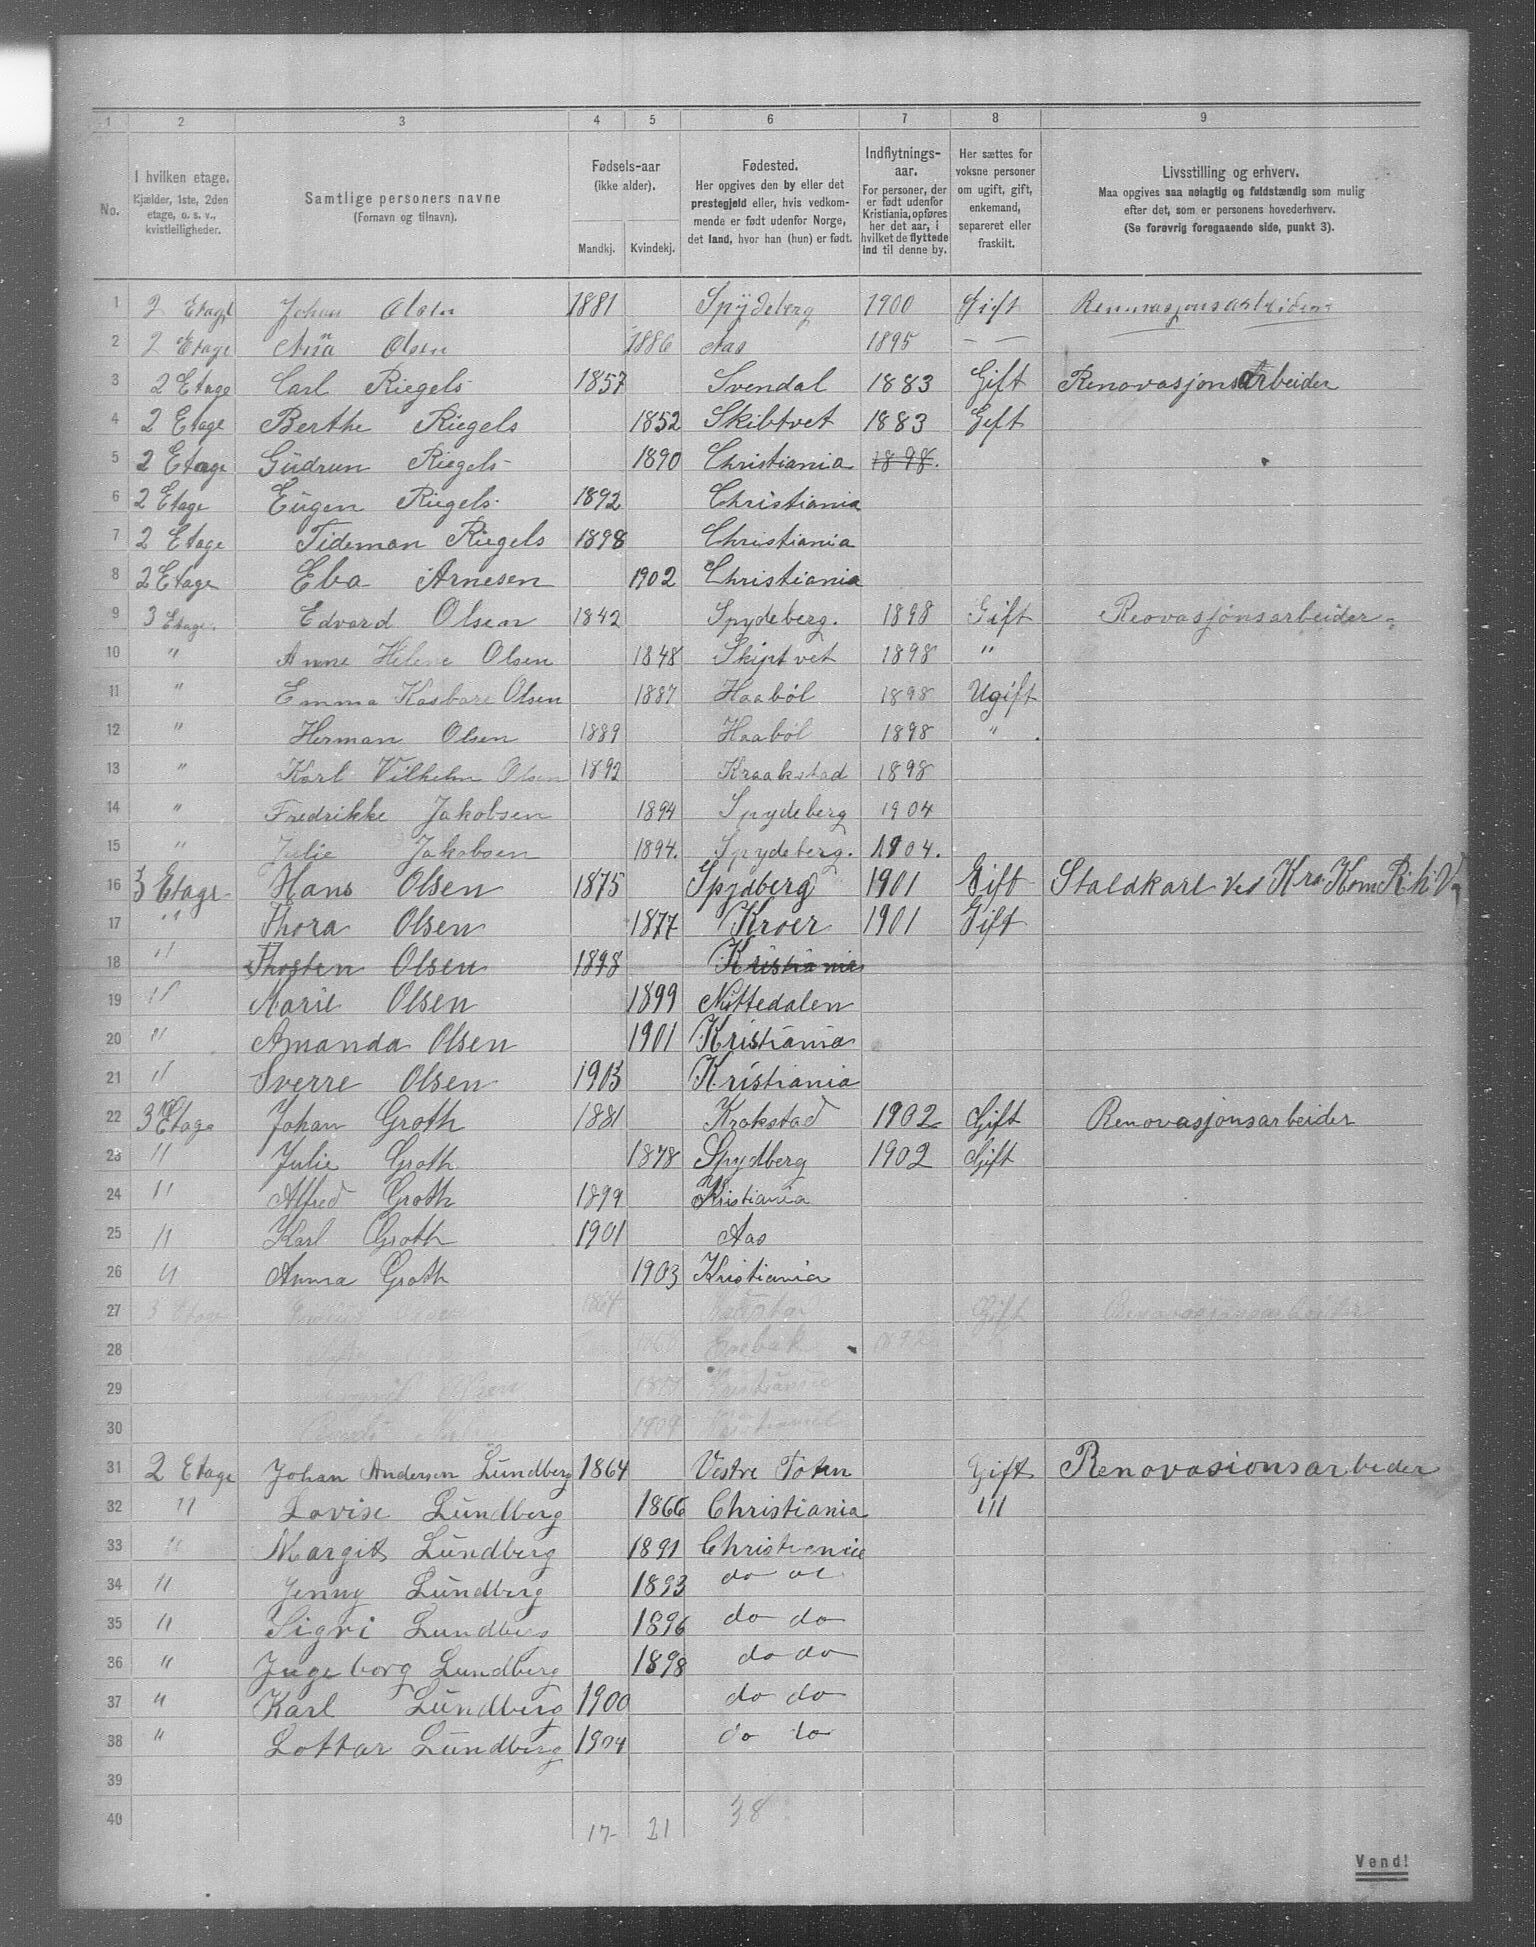 1 2 3 4 5 6 7 8 9
No.
I hvilken etage.
Kjælder, 1ste, 2den
etage, o. s. v.,
kvistleiligheder.
Samtlige personers navne
(Fornavn og tilnavn).
Fødsels-aar
(ikke alder).
Mandkj. Kvindekj.
Fødested.
Her opgives den by eller det
prestegjeld eller, hvis vedkom-
mende er født udenfor Norge,
det land, hvor han (hun) er født.
Indflytnings-
aar.
For personer, der
er født udenfor
Kristiania, opføres
her det aar, i
hvilket de flyttede
ind til denne by.
Her sættes for
voksne personer
om ugift, gift,
enkemand,
separeret eller
fraskilt.
Livsstilling og erhverv.
Maa opgives saa nøiagtig og fuldstændig som mulig
efter det, som er personens hovederhverv.
(Se forøvrig foregaaende side, punkt 3).
1 2 Etage Johan Olsen 1881 Spydeberg 1900 Gift
2 2 Etage Olsen 1886 Aas 1895 — —
3 2 Etage Carl Riegels 1857 Svendal 1883 Gift RenovasjonsArbeider
4 2 Etage Berthe Riegels 1852 Skibtvet 1883 Gift
5 2 Etage Gudrun Riegels 1890 Christiania 1898.
6 2 Etage Eugen Riegels 1892 Christiania
7 2 Etage Tideman Riegels 1898 Christiania
8 2 Etage Eba Arnesen 1902 Christiania
9 3 Etage. Edvard Olsen 1842 Spydeberg. 1898 Gift Reovasjonsarbeider
10 " Anne Helene Olsen 1848 Skiptvet 1898 "
11 " Emma Kasbare Olsen 1887 Haabøl 1898 Ugift
12 " Herman Olsen 1889 Haabøl 1898 "
13 " Karl Vilhelm Olsen 1892 Kraakstad 1898
14 " Fredrikke Jakobsen 1894 Spydeberg 1904
15 " Julie Jakobsen 1894. Spydeberg. 1904.
16 3 Etage Hans Olsen 1875 Spydberg 1901 Gift Staldkarl ved Kra. Kom. R. h. V.
17 " Thora Olsen 1877 Kroer 1901 Gift
18 " Thosten Olsen 1898 Kristiania
19 " Marie Olsen 1899 Nittedalen
20 " Amanda Olsen 1901 Kristiania
21 " Sverre Olsen 1903 Kristiania
22 3 Etage Johan Groth 1881 Krakstad 1902 Gift Renovasjonsarbeider
23 " Julie Groth 1878 Spydberg 1902 Gift
24 " Alfred Groth 1899 Kristiania
25 " Karl Groth 1901 Aas
26 " Anna Groth 1903 Kristiania
27 3 Etage 1864 Gift Renovasjonsarbeider
28
29 Olsen Kristiania
30 Kristiania
31 2 Etage Johan Andersen Lundberg 1864 Vestre Toten Gift Renovasionsarbeder
32 " Lovise Lundberg 1866 Christiania "
33 " Margit Lundberg 1891 Christiania
34 " Jenny Lundberg 1893 do do
35 " Sigri Lundberg 1896 do do
36 " Ingeborg Lundberg 1898 do do
37 " Karl Lundberg 1900 do do
38 " Lottar Lundberg 1904 do do
39
40 17 21 38
Vend!